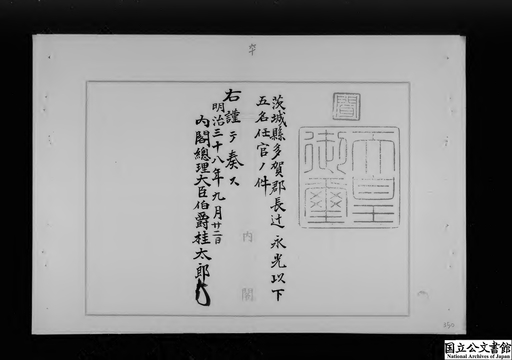 茨城縣多賀郡長辻永光以下
五名任官ノ件
右謹テ奏ス
明治三十八年九月廿二日
内閣總理大臣伯爵桂太郎
天皇御璽
内閣
国立公文書館
National Archives of Japan